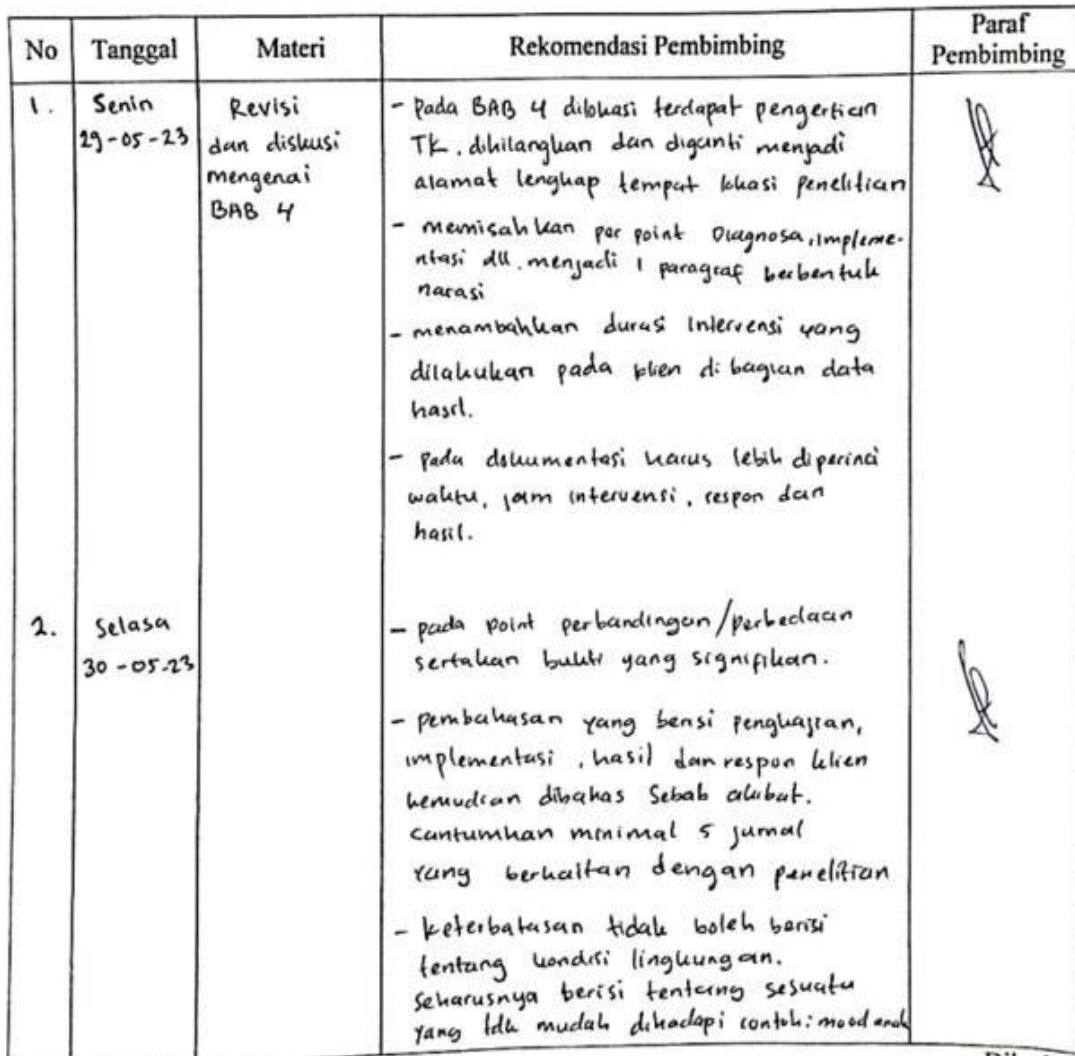 No Tanggal Materi Rekomendasi Pembimbing Paraf Pembimbing
1. Senin 29-05-23
Revisi
dan diskusi
mengenai
BAB 4
- Pada BAB 4 dilokasi terdapat pengertian
TK. dihilangkan dan diganti menjadi
alamat lengkap tempat lokasi penelitian
- memisahkan per point Diagnosa, impleme-
ntasi dll. menjadi 1 paragraf berbentuk
narasi
- menambahkan durasi intervensi yang
dilakukan pada klien di bagian data
hasil.
- Pada dokumentasi harus lebih diperinci
waktu, jam intervensi, respon dan
hasil.
2. Selasa 30-05-23
- pada point perbandingan/perbedaan
sertakan bukti yang signifikan.
- pembahasan yang berisi pengkajian,
implementasi, hasil dan respon klien
kemudian dibahas Sebab akibat.
cantumkan minimal 5 jurnal
yang berkaitan dengan penelitian
- keterbatasan tidak boleh berisi
tentang kondisi lingkungan.
seharusnya berisi tentang sesuatu
yang tdk mudah dihadapi contoh: mood anak